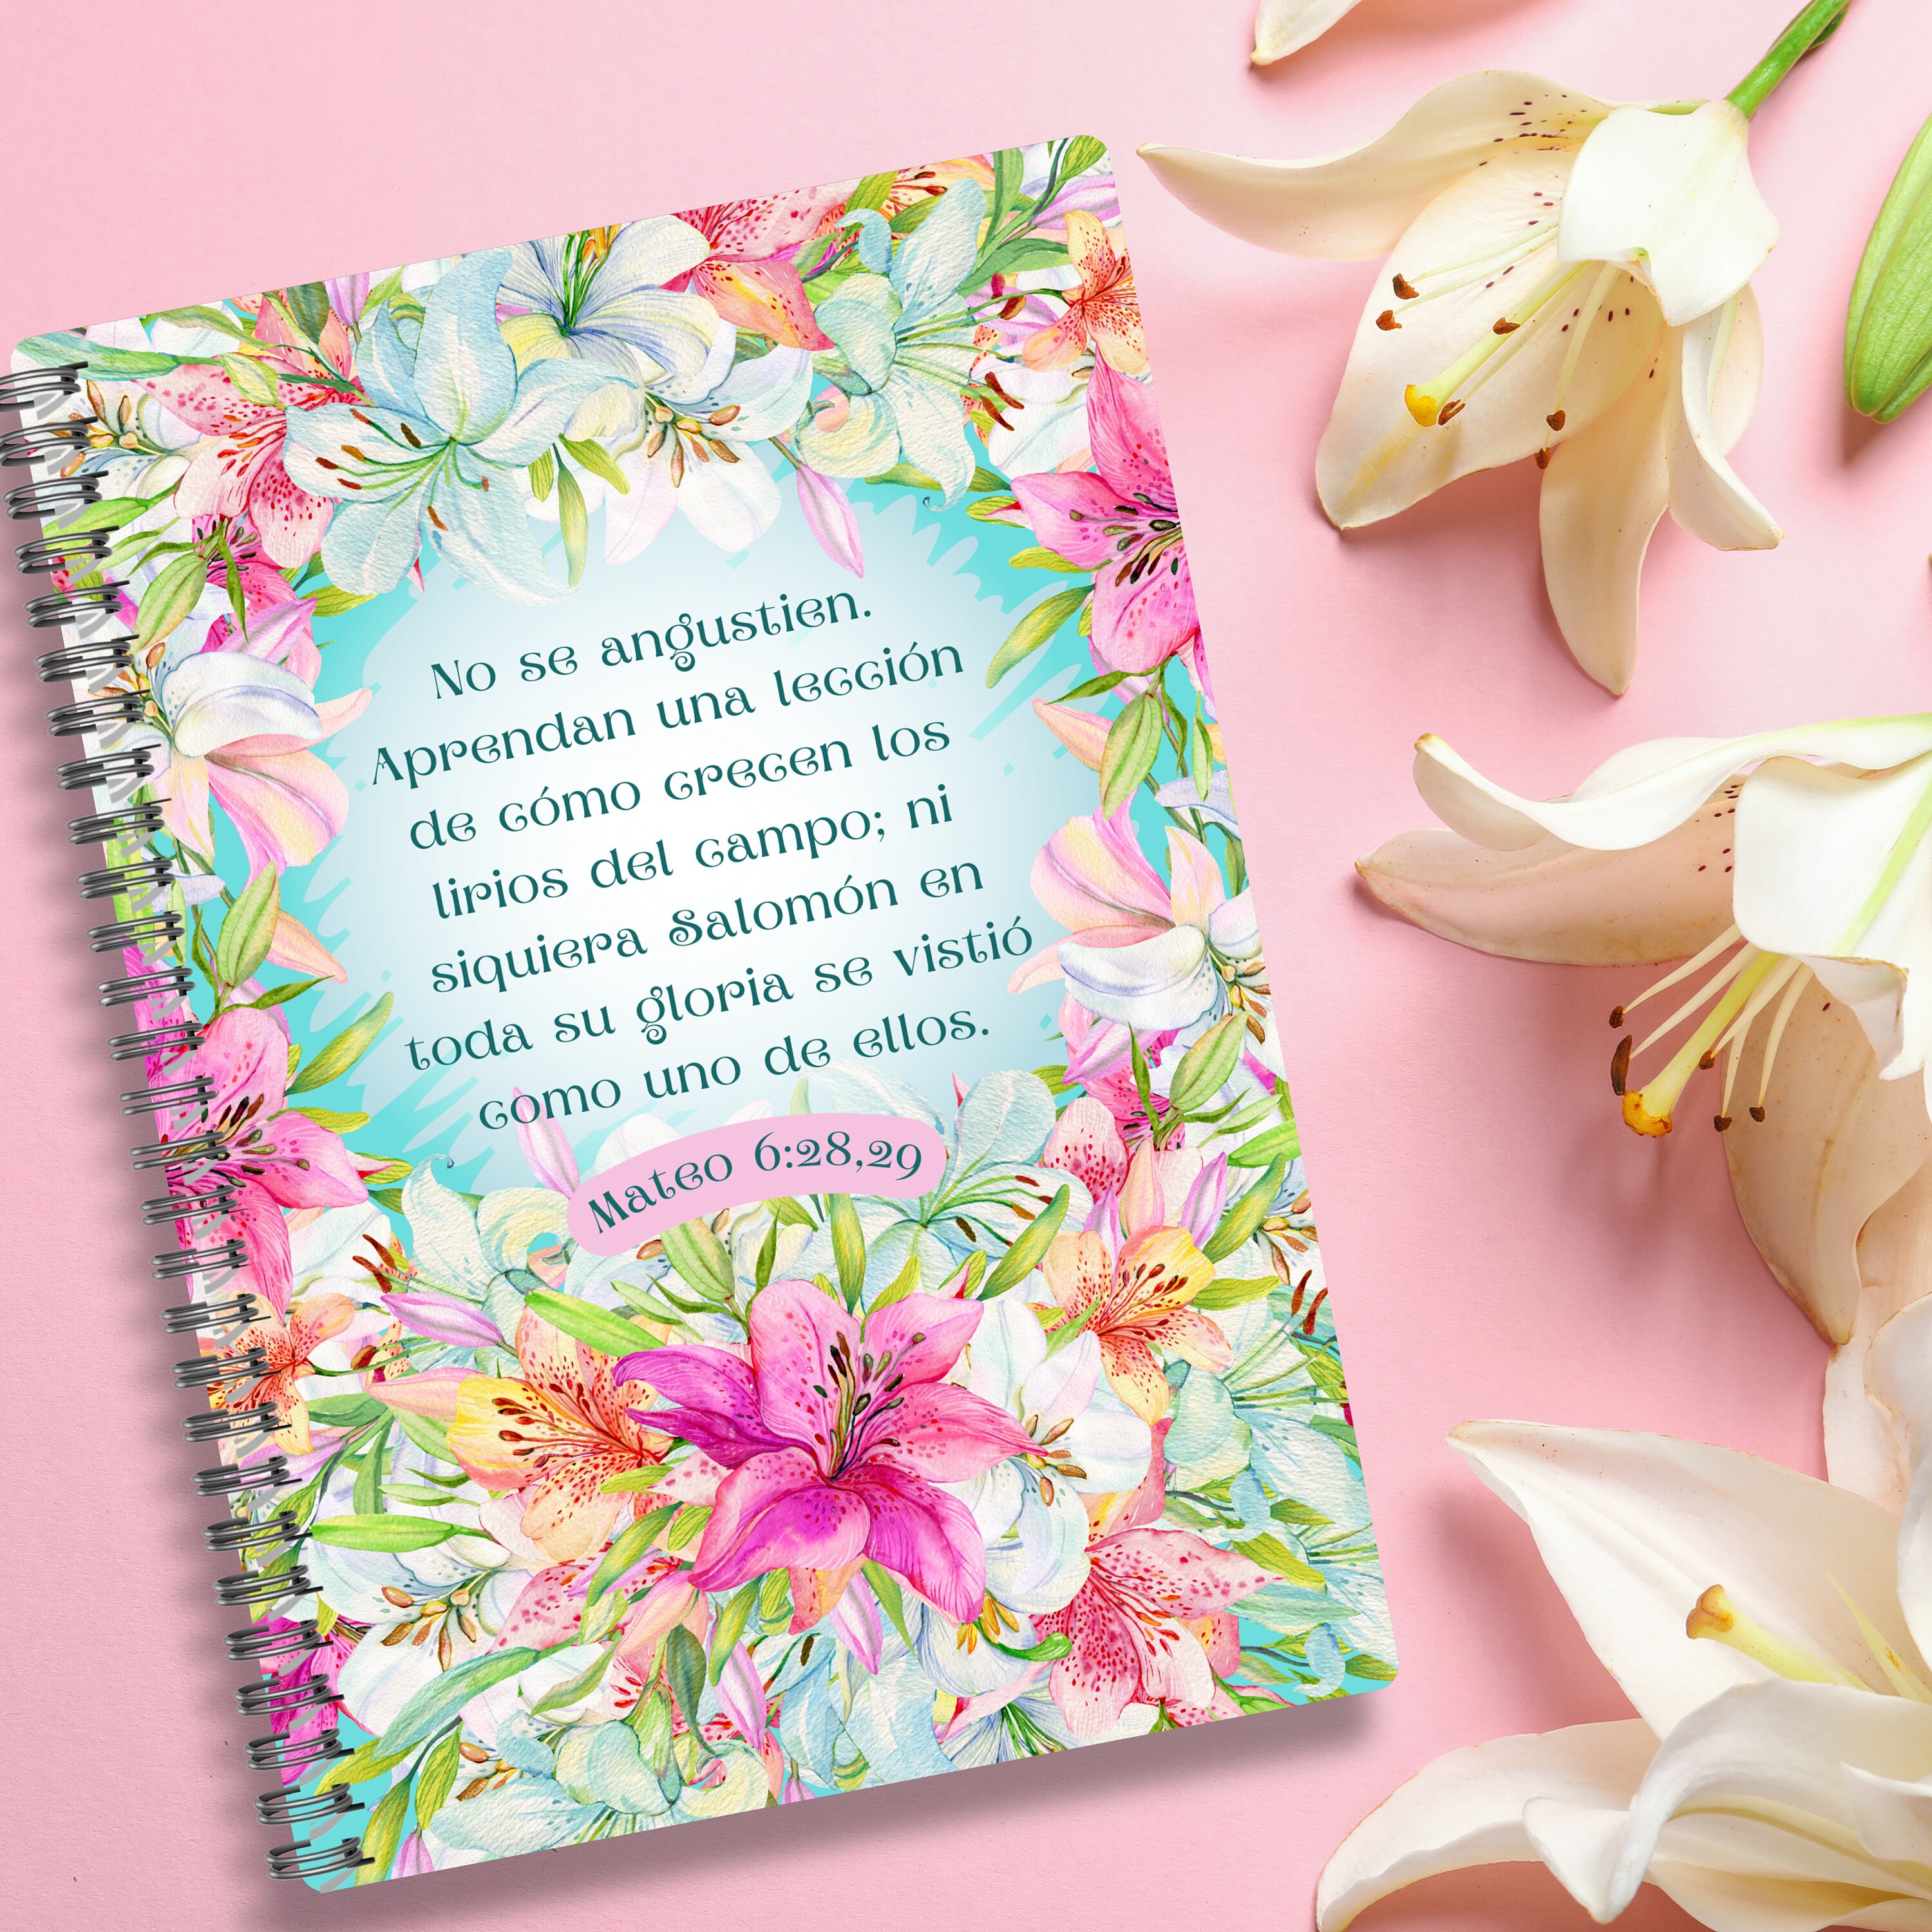 No se angustien.
Aprendan una lección
de cómo crecen los
lirios del campo; ni
siquiera Salomón en
toda su gloria se vistió
como uno de ellos.
Mateo 6:28,29